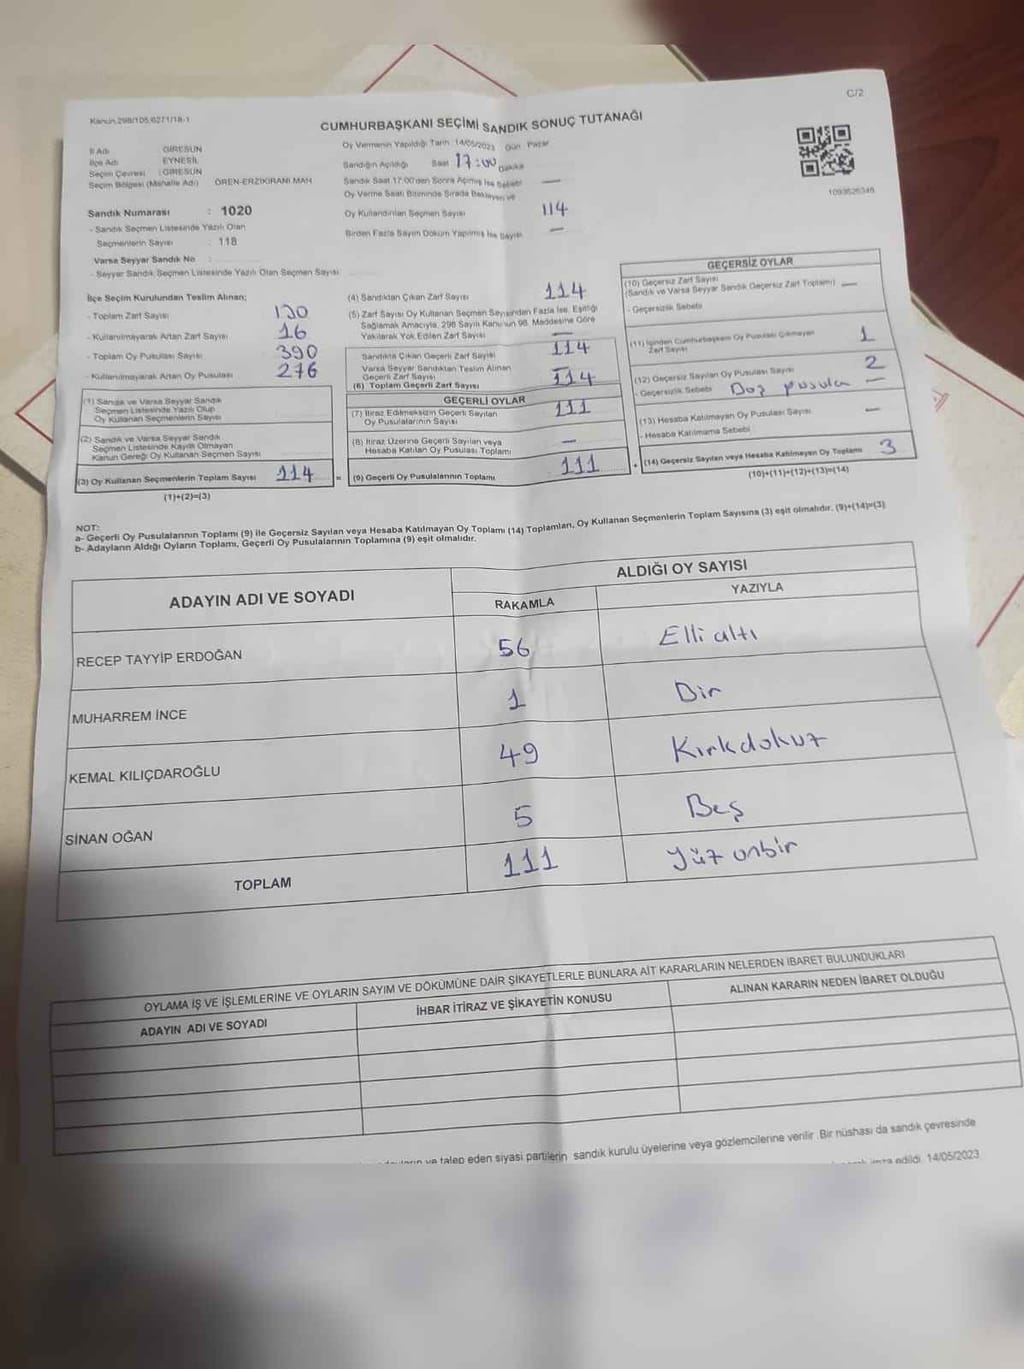 C/2
Kanun,298/105,6271/18-1
CUMHURBAŞKANI SEÇİMİ SANDIK SONUÇ TUTANAĞI
İl Adı : GİRESUN
İlçe Adı : EYNESİL
Seçim Çevresi : GİRESUN
Seçim Bölgesi (Mahalle Adı) ÖREN-ERZİKIRANI MAH
Oy Vermenin Yapıldığı Tarih 14/05/2023 Gün Pazar
Sandığın Açıldığı Saat 17:00 Dakika
Sandık Saat 17:00'den Sonra Açılmış İse Sebebi —
Oy Verme Saati Bitiminde Sırada Bekleyen ve
Oy Kullandırılan Seçmen Sayısı 114
Birden Fazla Sayım Döküm Yapılmış İse Sayısı —
1093626346
Sandık Numarası : 1020
- Sandık Seçmen Listesinde Yazılı Olan
Seçmenlerin Sayısı : 118
Varsa Seyyar Sandık No :
- Seyyar Sandık Seçmen Listesinde Yazılı Olan Seçmen Sayısı
İlçe Seçim Kurulundan Teslim Alınan;
- Toplam Zarf Sayısı 130
- Kullanılmayarak Artan Zarf Sayısı 16
- Toplam Oy Pusulası Sayısı 390
- Kullanılmayarak Artan Oy Pusulası 276
(1) Sandık ve Varsa Seyyar Sandık
Seçmen Listesinde Yazılı Olup
Oy Kullanan Seçmenlerin Sayısı
(2) Sandık ve Varsa Seyyar Sandık
Seçmen Listesinde Kayıtlı Olmayan
Kanun Gereği Oy Kullanan Seçmen Sayısı
(3) Oy Kullanan Seçmenlerin Toplam Sayısı 114 =
(1)+(2)=(3)
(4) Sandıktan Çıkan Zarf Sayısı 114
(5) Zarf Sayısı Oy Kullanan Seçmen Sayısından Fazla İse, Eşitliği
Sağlamak Amacıyla, 298 Sayılı Kanunun 98. Maddesine Göre
Yakılarak Yok Edilen Zarf Sayısı —
Sandıkta Çıkan Geçerli Zarf Sayısı 114
Varsa Seyyar Sandıktan Teslim Alınan
Geçerli Zarf Sayısı —
(6) Toplam Geçerli Zarf Sayısı 114
GEÇERLİ OYLAR
(7) İtiraz Edilmeksizin Geçerli Sayılan
Oy Pusulalarının Sayısı 111
(8) İtiraz Üzerine Geçerli Sayılan veya
Hesaba Katılan Oy Pusulası Toplamı —
(9) Geçerli Oy Pusulalarının Toplamı 111 +
GEÇERSİZ OYLAR
(10) Geçersiz Zarf Sayısı
(Sandık ve Varsa Seyyar Sandık Geçersiz Zarf Toplamı) —
- Geçersizlik Sebebi
(11) İçinden Cumhurbaşkanı Oy Pusulası Çıkmayan
Zarf Sayısı 1
(12) Geçersiz Sayılan Oy Pusulası Sayısı 2
- Geçersizlik Sebebi Boş pusula —
(13) Hesaba Katılmayan Oy Pusulası Sayısı —
- Hesaba Katılmama Sebebi
(14) Geçersiz Sayılan veya Hesaba Katılmayan Oy Toplamı 3
(10)+(11)+(12)+(13)=(14)
NOT:
a- Geçerli Oy Pusulalarının Toplamı (9) ile Geçersiz Sayılan veya Hesaba Katılmayan Oy Toplamı (14) Toplamları, Oy Kullanan Seçmenlerin Toplam Sayısına (3) eşit olmalıdır. (9)+(14)=(3)
b- Adayların Aldığı Oyların Toplamı, Geçerli Oy Pusulalarının Toplamına (9) eşit olmalıdır.
ADAYIN ADI VE SOYADI
ALDIĞI OY SAYISI
RAKAMLA YAZIYLA
RECEP TAYYİP ERDOĞAN 56 Elli altı
MUHARREM İNCE 1 Bir
KEMAL KILIÇDAROĞLU 49 Kırkdokuz
SİNAN OĞAN 5 Beş
TOPLAM 111 Yüz onbir
OYLAMA İŞ VE İŞLEMLERİNE VE OYLARIN SAYIM VE DÖKÜMÜNE DAİR ŞİKAYETLERLE BUNLARA AİT KARARLARIN NELERDEN İBARET BULUNDUKLARI
ADAYIN ADI VE SOYADI İHBAR İTİRAZ VE ŞİKAYETİN KONUSU ALINAN KARARIN NEDEN İBARET OLDUĞU
ve talep eden siyasi partilerin sandık kurulu üyelerine veya gözlemcilerine verilir. Bir nüshası da sandık çevresinde
imza edildi. 14/05/2023